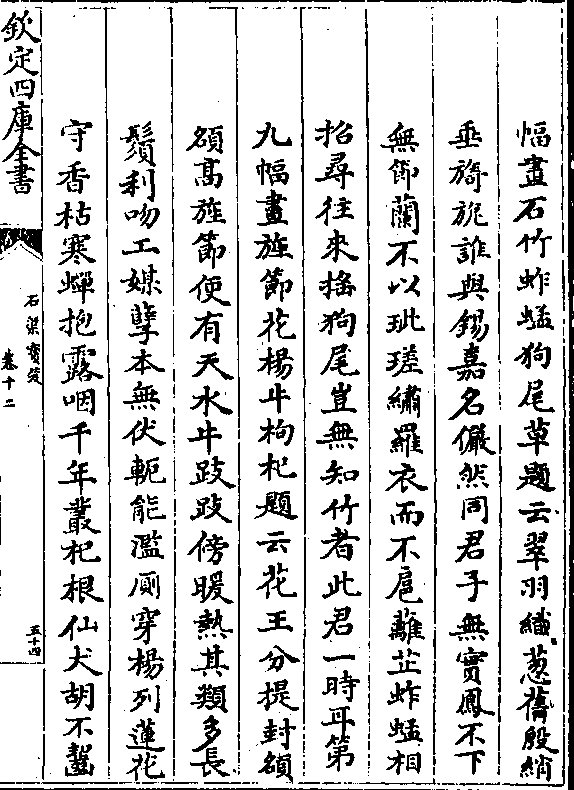 幅畫石竹蚱蜢狗尾草題云翠羽纎葱蒨殷綃
垂旖旎誰與錫嘉名儼然同君子無實鳳不下
無節蘭不以玼瑳繡羅衣而不扈蘺芷蚱蜢相
招尋往來搖狗尾豈無知竹者此君一時耳第
九幅畫旌節花楊牛枸杞題云花王分提封領
領髙旌節便有天水牛跂跂傍暖熱其類多長
鬚利吻工媒孽本無伏軛能濫厠穿楊列蓮花
守香枯寒蟬抱露咽千年叢杞根仙犬胡不齧
欽定四庫全書
石渠寶笈
卷十二
五十四